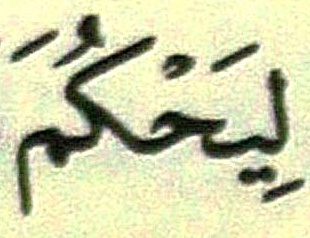 لِيَحْكُمَ